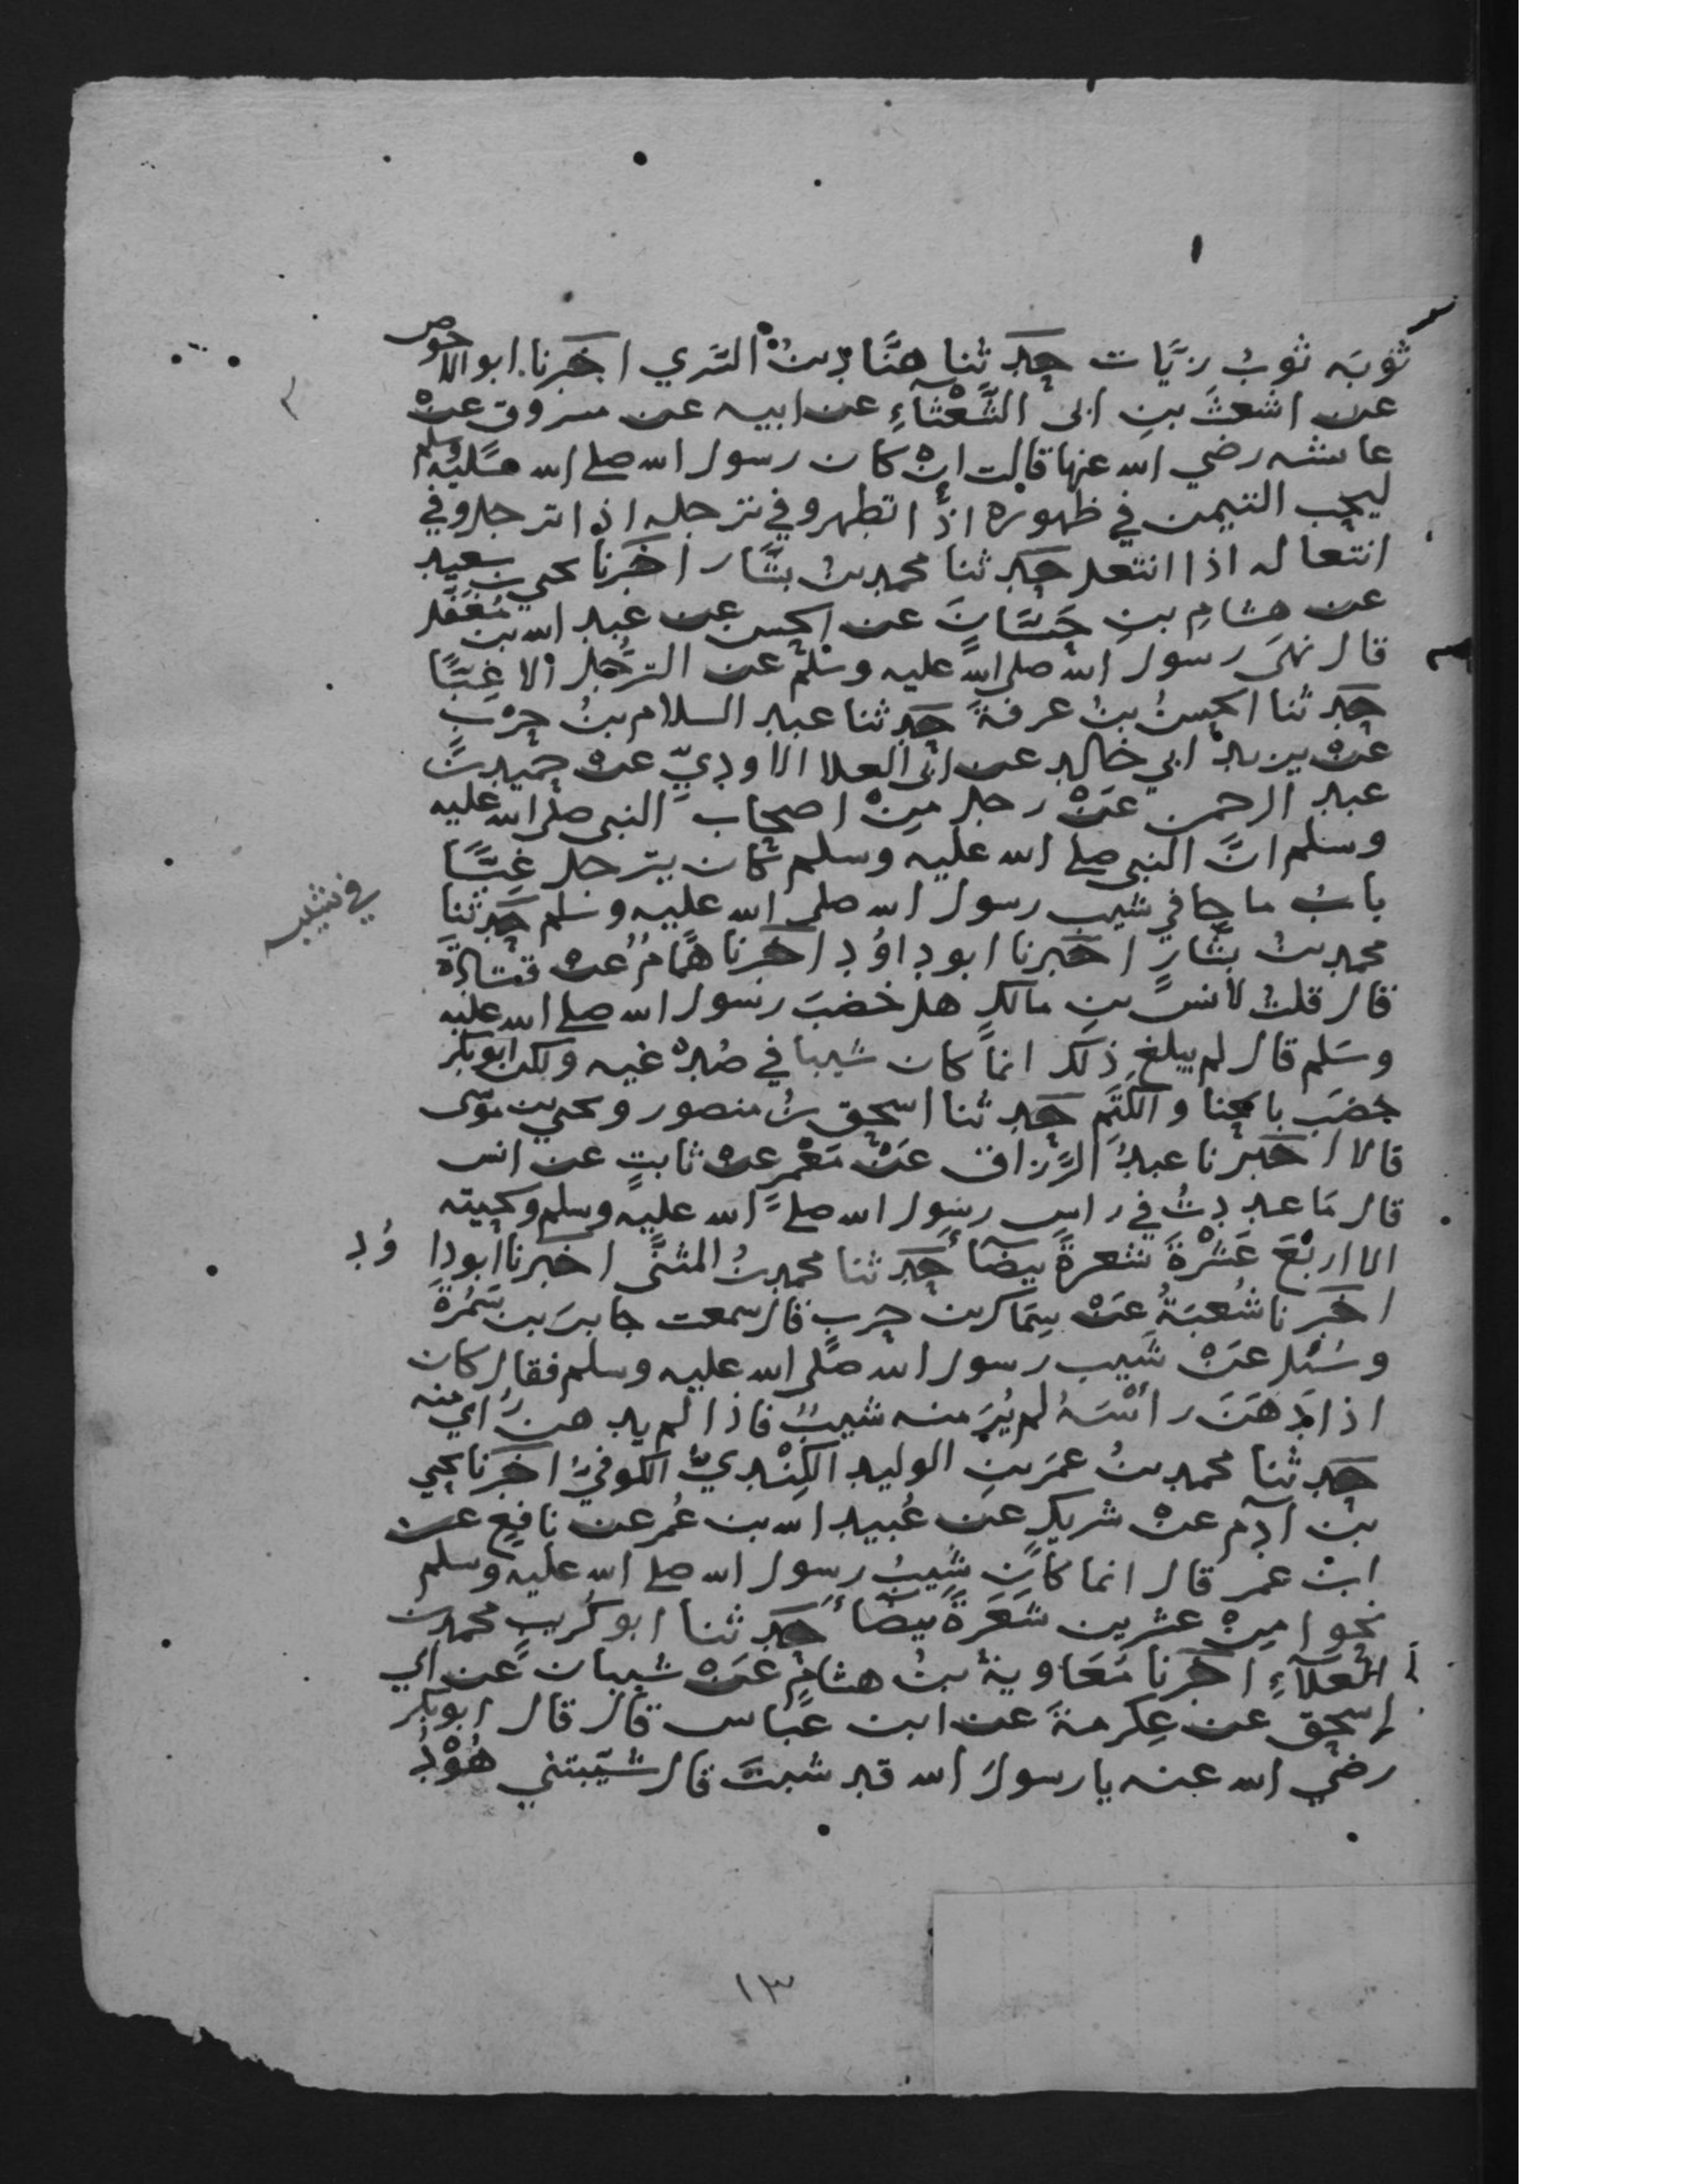 ثوبَه ثوبُ زيَّات حدثنا هنَّاد بنُ السَّري اخبرنا ابو الاحوص
عن اشعثَ بنِ ابى الشَّعْثَآءِ عن ابيه عن مسروق عنْ
عايشه رضي الله عنها قالت انْ كان رسول الله صلى الله عليه وسلم
ليحب التيمن في طهوره اذا تطهر وفي ترجله اذا ترجل وفي
انتعاله اذا انتعل حدثنا محمد بنُ بشَّار اخبرنا يحيى بن سعيد
عن هشامِ بنِ حَسَّانَ عن الحسن عن عبد الله بن مُغَفَّل
قال نهىَ رسول الله صلى الله عليه وسلم عن الترَجُّل الا غِبًّا
حدثنا الحسنُ بنُ عرفةَ حدثنا عبد السلام بنُ حرْبٍ
عنْ يزيد ابي خالد عن ابى العلا الاوديِّ عنْ حميد بن
عبد الرحمن عَنْ رجل مِنْ اصحاب النبى صلى الله عليه
وسلم انَّ النبى صلى الله عليه وسلم كان يترجل غِبًّا
بابُ ما جا في شيب رسول الله صلى الله عليه وسلم حدثنا
في شيبه
محمد بنُ بشَّارٍ اخبرنا ابو داوُد اخبرنا همَّامُ عنْ قتادَةَ
قال قلتُ لانسِ بنِ مالكٍ هل خضبَ رسول الله صلى الله عليه
وسَلم قال لم يبلغ ذلكَ انما كان شيبا في صُدْغيه ولكن ابو بكر
خضبَ بالحنا والكَتَمِ حدثنا اسحق بنُ منصور ويحيى بن موسى
قالا اخبرنا عبدُ الرَّزاق عَنْ مَعْمرٍ عنْ ثابتٍ عن انس
قال مَا عددتُ في راسِ رسولِ الله صلى الله عليه وسلم ولحيته
الا اربَعَ عَشْرةَ شعرةً بيضآَ حدثنا محمد بنُ المثنَّى اخبرنا ابو داوُد
اخبرنا شُعبَةُ عَنْ سِمَاك بن حرب قال سمعت جابرَ بن سَمُرةَ
وسُئل عَنْ شَيب رسول الله صلى الله عليه وسلم فقال كان
اذا دَهَنَ رأسَهُ لم يُرَ منه شيبٌ فاذا لم يدهن رُاي منه
حدثنا محمد بنُ عمرَ بنِ الوليد الكِنْديُّ الكوفيُّ اخبرنا يحيى
بن آدم عنْ شريكٍ عن عُبيد الله بن عُمر عن نافعٍ عن
ابن عمر قال انما كان شَيبُ رسول الله صلى الله عليه وسلم
نحوا مِنْ عشرين شَعَرةً بيضآَ حدثنا ابو كُرَيب محمد بن
العَلآءِ اخبرنا مُعَاوية بنُ هشامٍ عَنْ شيبان عن ابي
اسحق عن عِكرمةَ عن ابن عباس قال قال ابو بكر
رضي الله عنه يا رسولَ الله قد شبتَ قال شيَّبتني هُوْدُ
١٣